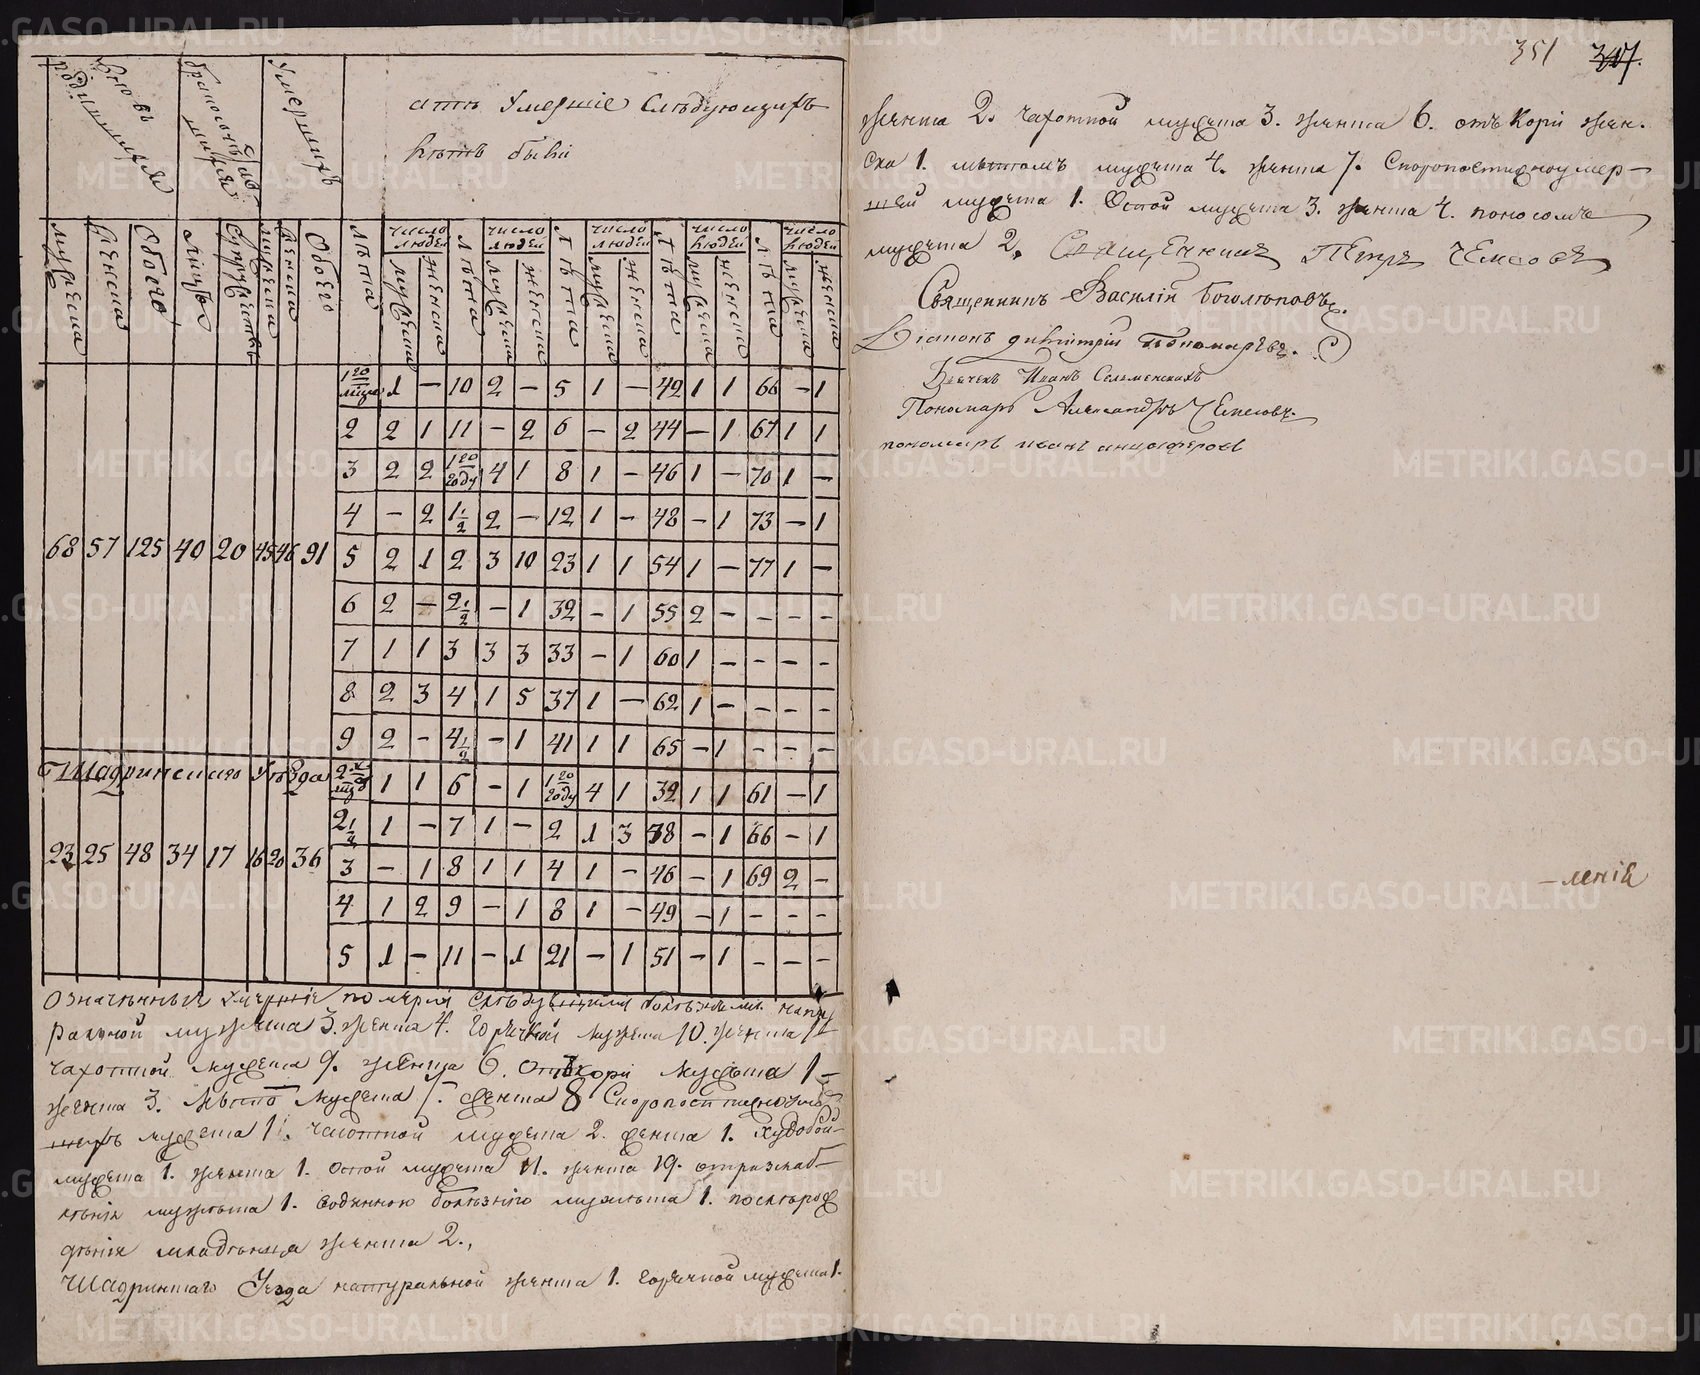 351 347.
Умершихъ
а тѣ Умершіе Слѣдующихъ
лѣтъ были
мужеска женска Обоего мужеска женска Обоего лѣта число людей лѣта число людей лѣта число людей лѣта число людей лѣта число людей
мужеска женска мужеска женска мужеска женска мужеска женска мужеска женска
1 – 10 2 – 5 1 – 42 1 1 66 – 1
2 2 1 11 – 2 6 – 2 44 – 1 67 1 1
3 2 2 1го году 4 1 8 1 – 46 1 – 70 1 –
4 – 2 1½ 2 – 12 1 – 48 – 1 73 – 1
68 57 125 40 20 45 46 91 5 2 1 2 3 10 23 1 1 54 1 – 77 1 –
6 2 – 2½ – 1 32 – 1 55 2 – – – –
7 1 1 3 3 3 33 – 1 60 1 – – – –
8 2 3 4 1 5 37 1 – 62 1 – – – –
9 2 – 4½ – 1 41 1 1 65 – 1 – – –
Шадринскаго Уѣзда
1 1 6 – 1 1го году 4 1 32 1 1 61 – 1
2½ 1 – 7 1 – 2 1 3 38 – 1 66 – 1
23 25 48 34 17 16 20 36 3 – 1 8 1 1 4 1 – 46 – 1 69 2 –
4 1 2 9 – 1 8 1 – 49 – 1 – – –
5 1 – 11 – 1 21 – 1 51 – 1 – – –
Означенные умершіе померли слѣдующими болѣзньми нату
ральной мужеска 3. женска 4. горячкой мужеска 10. женска
чахоткой мужеска 9. женска 6. отъ кори мужеска 1
женска 3. мужеска 7. женска 8 Скоропостижноумер
шихъ мужеска 1. мужеска 2. женска 1. худобой
мужеска 1. женска 1. оспой мужеска 11. женска 19. отразслаб
лѣнія мужеска 1. водяною болѣзнію мужеска 1. послѣрож
дѣнія младѣнца женска 2.
Шадринскаго Уезда натуральной женска 1. горячкой мужеска 1.
женска 2. чахоткой мужеска 3. женска 6. отъ Кори жен.
ска 1. мужеска 4. женска 7. Скоропостижноумер–
шей мужеска 1. Оспой мужеска 3. женска 4. поносомъ
мужеска 2. Священникъ Петръ Чемесовъ
Священникъ Василій Боголюповъ.
Діаконъ Димитрій Пономаревъ.
Дьячекъ Иванъ Сельменскихъ
Пономарь Александръ Чемесовъ
пономарь иванъ анциферовъ
–ленія